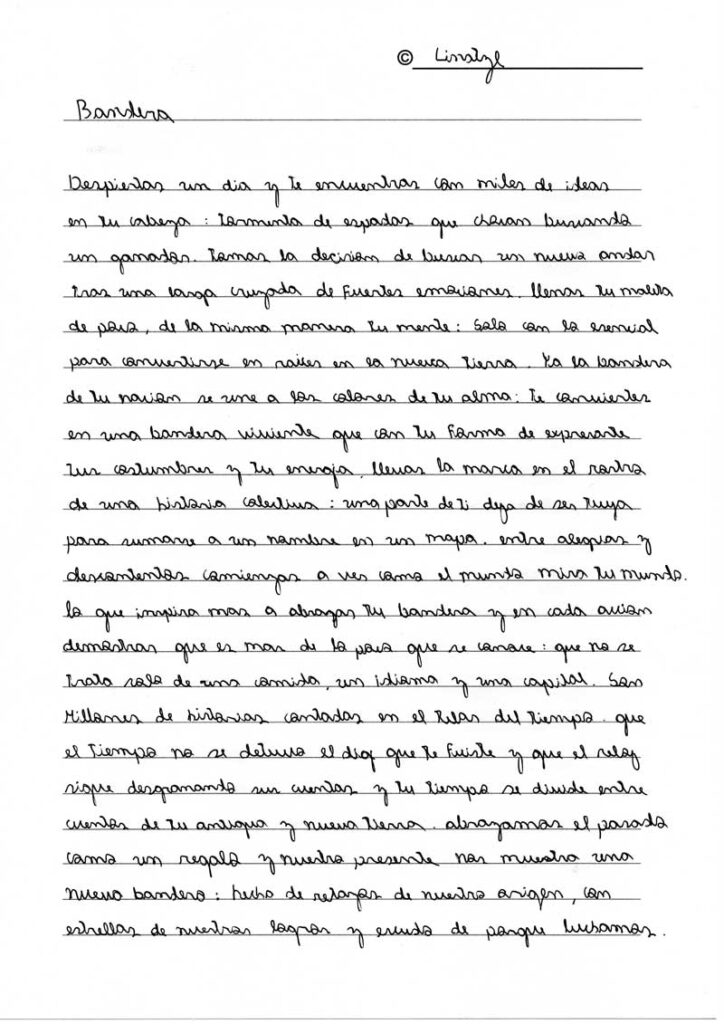 © Linotzl
Bandera
Despiertas un dia y te encuentras con miles de ideas
en tu cabeza : tormenta de espadas que chocan buscando
un ganador. Tomas la decision de buscar un nuevo andar
tras una larga cruzada de fuertes emociones. llenas tu maleta
de poco, de la misma manera tu mente : Solo con lo esencial
para convertirse en raices en la nueva tierra. Ya la bandera
de tu nacion se une a los colores de tu alma : te conviertes
en una bandera viviente que con tu forma de expresarte
tus costumbres y tu energia, llevas la marca en el rostro
de una historia colectiva : una parte de ti deja de ser tuya
para sumarse a un nombre en un mapa. entre alegrias y
descontentos comienzas a ver como el mundo mira tu mundo.
lo que inspira mas a abrazar tu bandera y en cada accion
demostrar que es mas de lo poco que se conoce : que no se
trata solo de una comida, un idioma y una capital. Son
Millones de historias contadas en el Reloj del tiempo. que
el tiempo no se detuvo el dia que te fuiste y que el reloj
sigue desgranando sus cuentas y tu tiempo se divide entre
cuentos de tu antigua y nueva tierra. abrazamos el pasado
como un regalo y nuestro presente nos muestra una
nueva bandera : hecha de retazos de nuestro origen, con
estrellas de nuestros logros y escudo de porque luchamos.